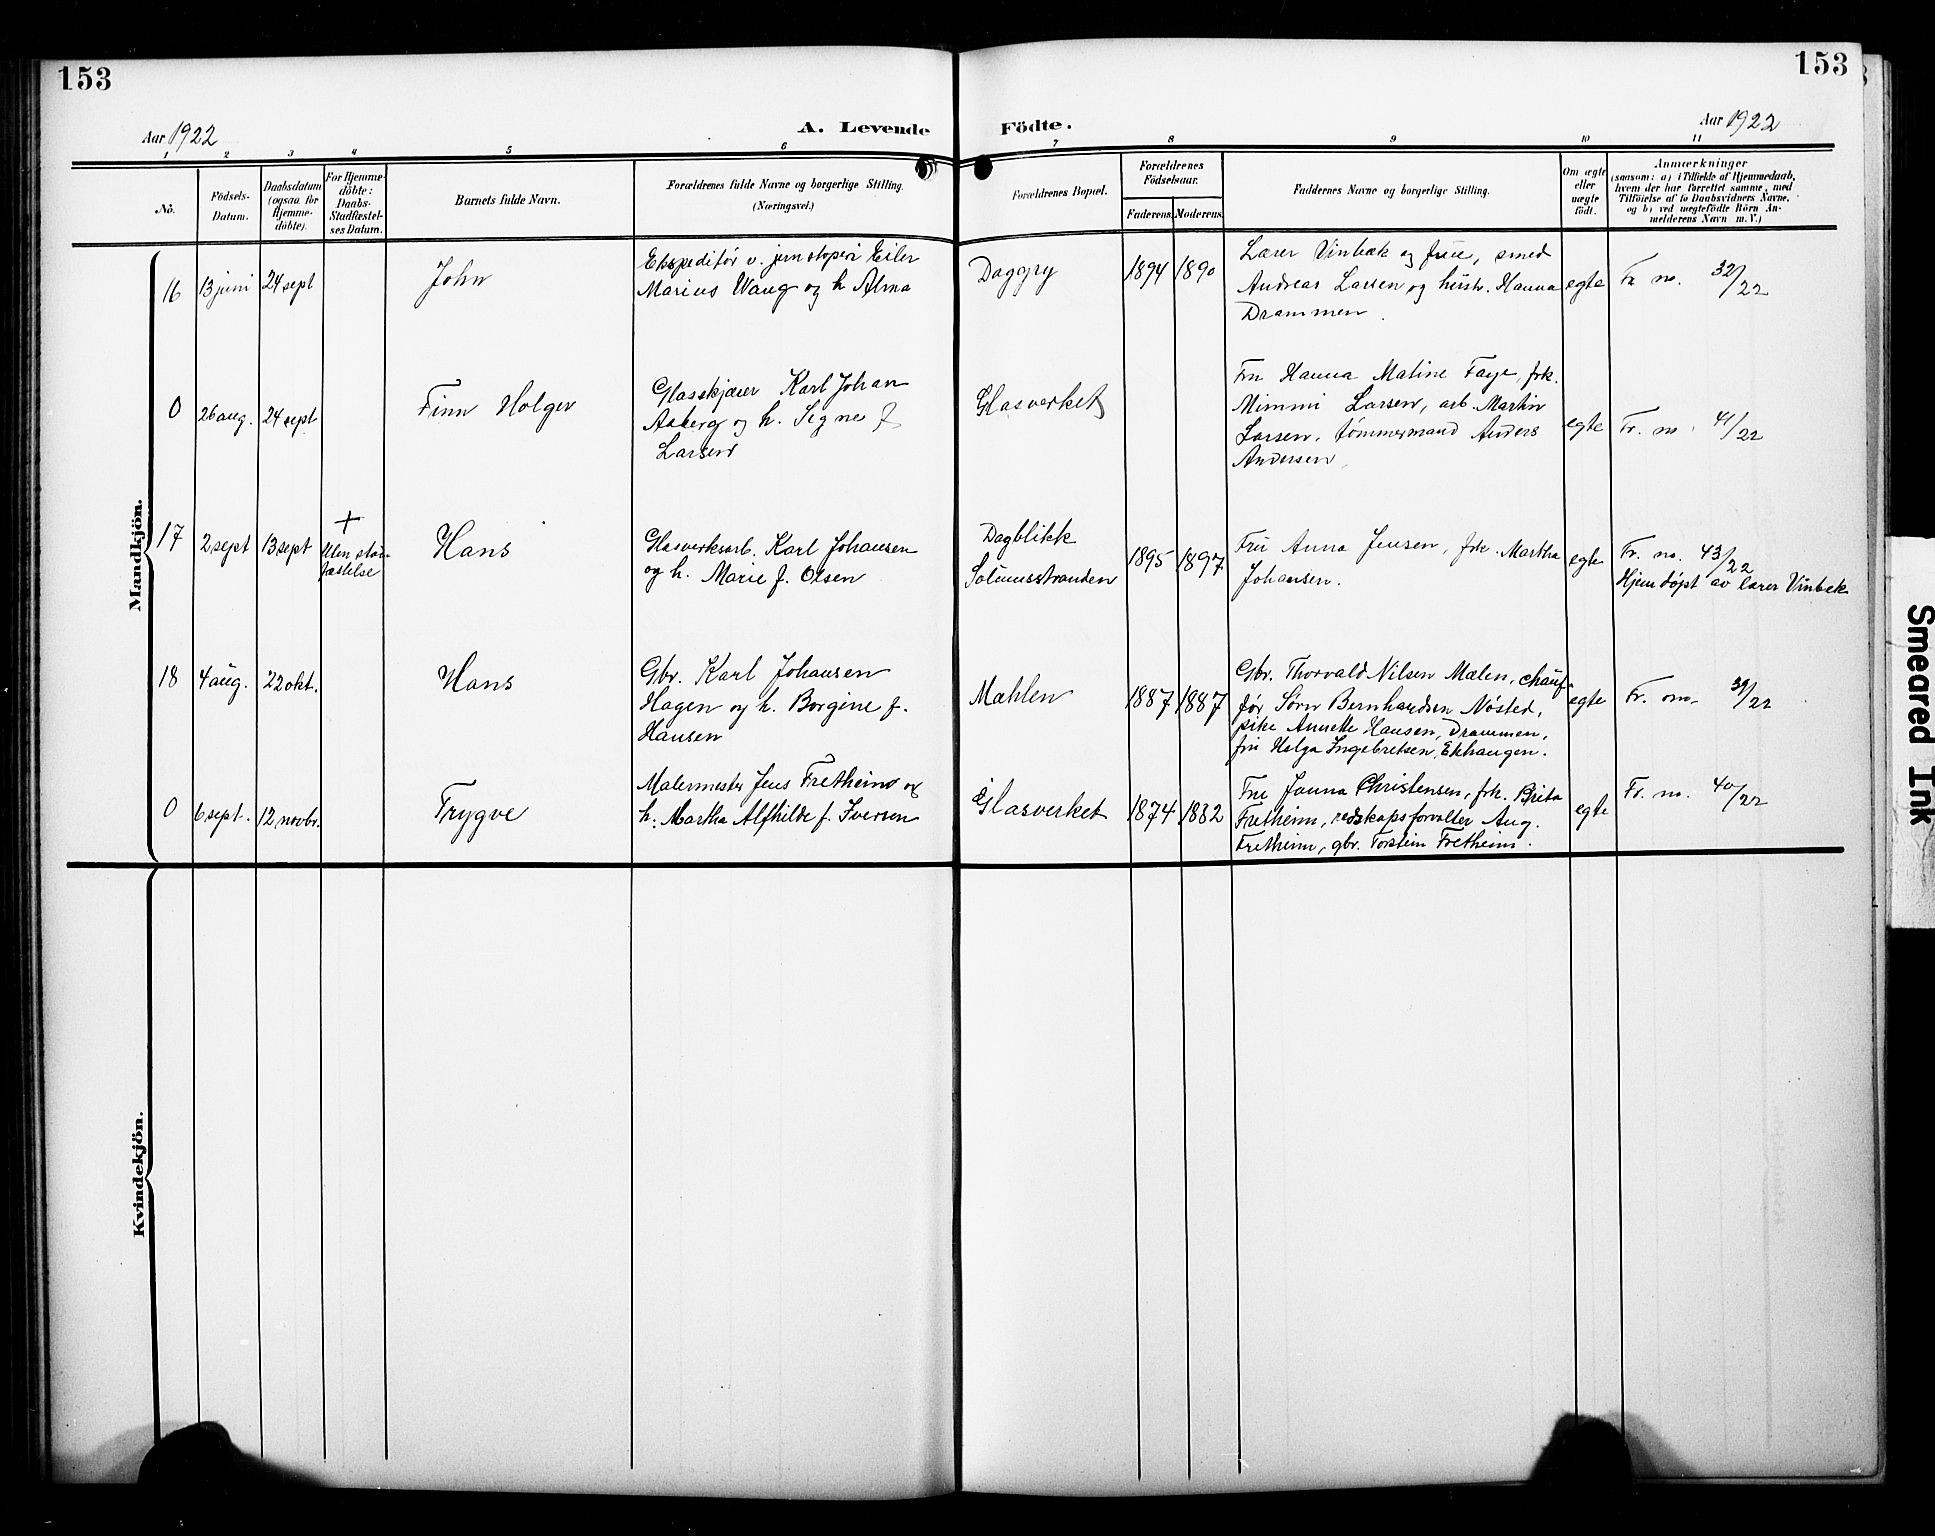 153
153
Aar 1922
A. Levende
Födte.
Aar 1922
1 2 3 4 5 6 7 8 9 10 11
No.
Födsels-
Datum.
Daabsdatum
(ogsaa for
Hjemme-
döbte).
For Hjemme-
döbte:
Daabs-
Stadfæstel-
ses Datum.
Barnets fulde Navn.
Forældrenes fulde Navne og borgerlige Stilling.
(Næringsvei.)
Forældrenes Bopæl.
Forældrenes
Födselsaar.
Faderens. Moderens.
Faddernes Navne og borgerlige Stilling.
Om ægte
eller
uægte
födt.
Anmærkninger
(saasom: a) i Tilfælde af Hjemmedaab,
hvem der har forrettet samme, med
Tilföielse af to Daabsvidners Navne,
og b) ved uægtefödte Börn An-
melderens Navn m. V.)
Mandkjön.
16
13 juni
24 sept
John
Ekspeditør v. jernstøperi Eiler
Marius Waug og h. Alma
Daggry
1894
1890
Lærer Vinbæk og frue, smed
Andreas Larsen og hustr. Hanna
Drammen.
egte
Fr no. 32/22
0
26 aug.
24 sept
Finn Holger
Glasskjærer Karl Johan
Aaberg og h. Signe f
Larsen
Glasverket
Fru Hanna Matine Faye, frk.
Mimmi Larsen, arb. Martin
Larsen, tømmermand Anders
Andersen.
egte
Fr. no. 41/22
17
2 sept
13 sept
+
Uten stad-
fæstelse
Hans
Glasverksarb. Karl Johansen
og h. Marie f. Olsen
Dagblikk
Solumsstranden
1895
1897
Fru Anna Jensen, frk. Martha
Johansen.
egte
Fr. no. 43/22
Hjemdøpt av lærer Vinbæk
18
4 aug.
22 okt.
Hans
Gbr. Karl Johansen
Hagen og h. Borgine f.
Hansen
Mahlen
1887
1887
Gbr. Thorvald Nilsen Malen, chauf-
før Sørn Bernhardsen Nøsted,
pike Annette Hansen, Drammen,
fru Helga Ingebretsen, Ekhaugen.
egte
Fr. no. 39/22
0
6 sept.
12 novbr.
Trygve
Malermester Jens Fretheim og
h. Martha Alfhilde f. Iversen
Glasverket
1874
1882
Fru Janna Christensen, frk. Brita
Fretheim, redskapsforvalter Aug.
Fretheim, gbr. Torstein Fretheim.
egte
Fr. no. 40/22
Kvindekjön.
Smeared Ink